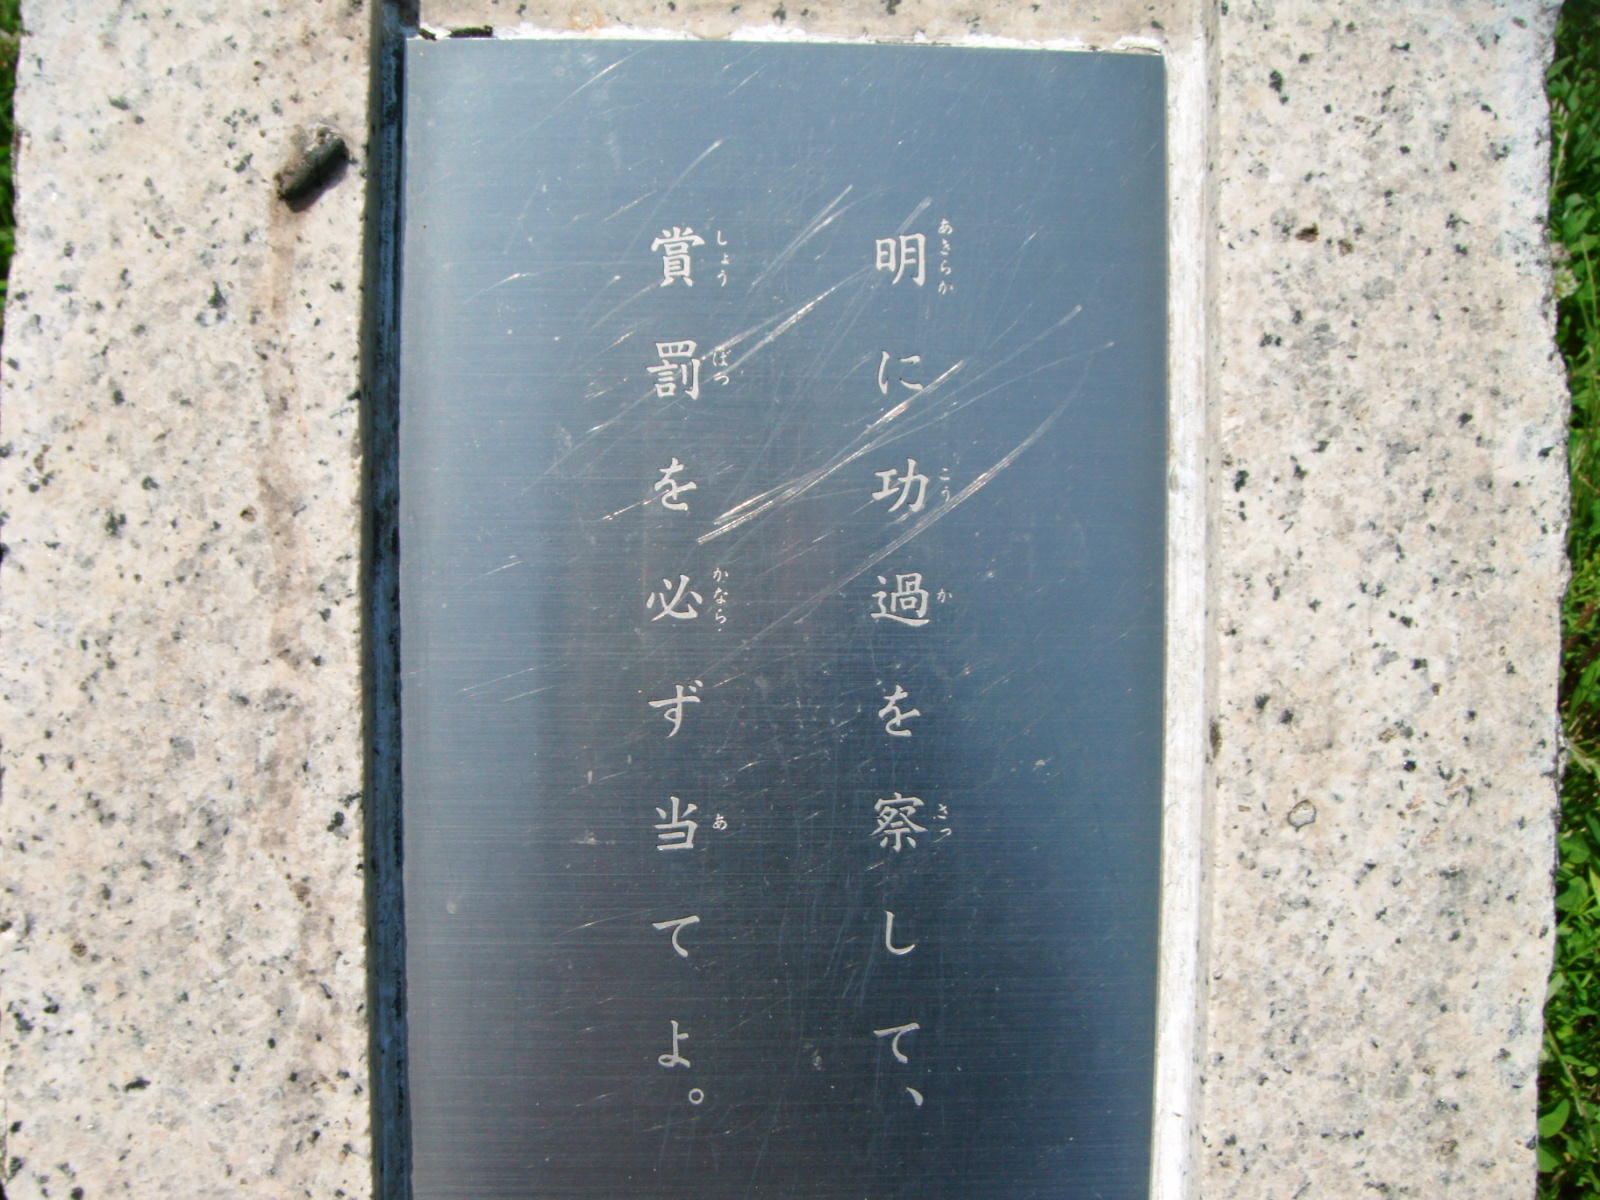 明に功過を察して、
賞罰を必ず当てよ。